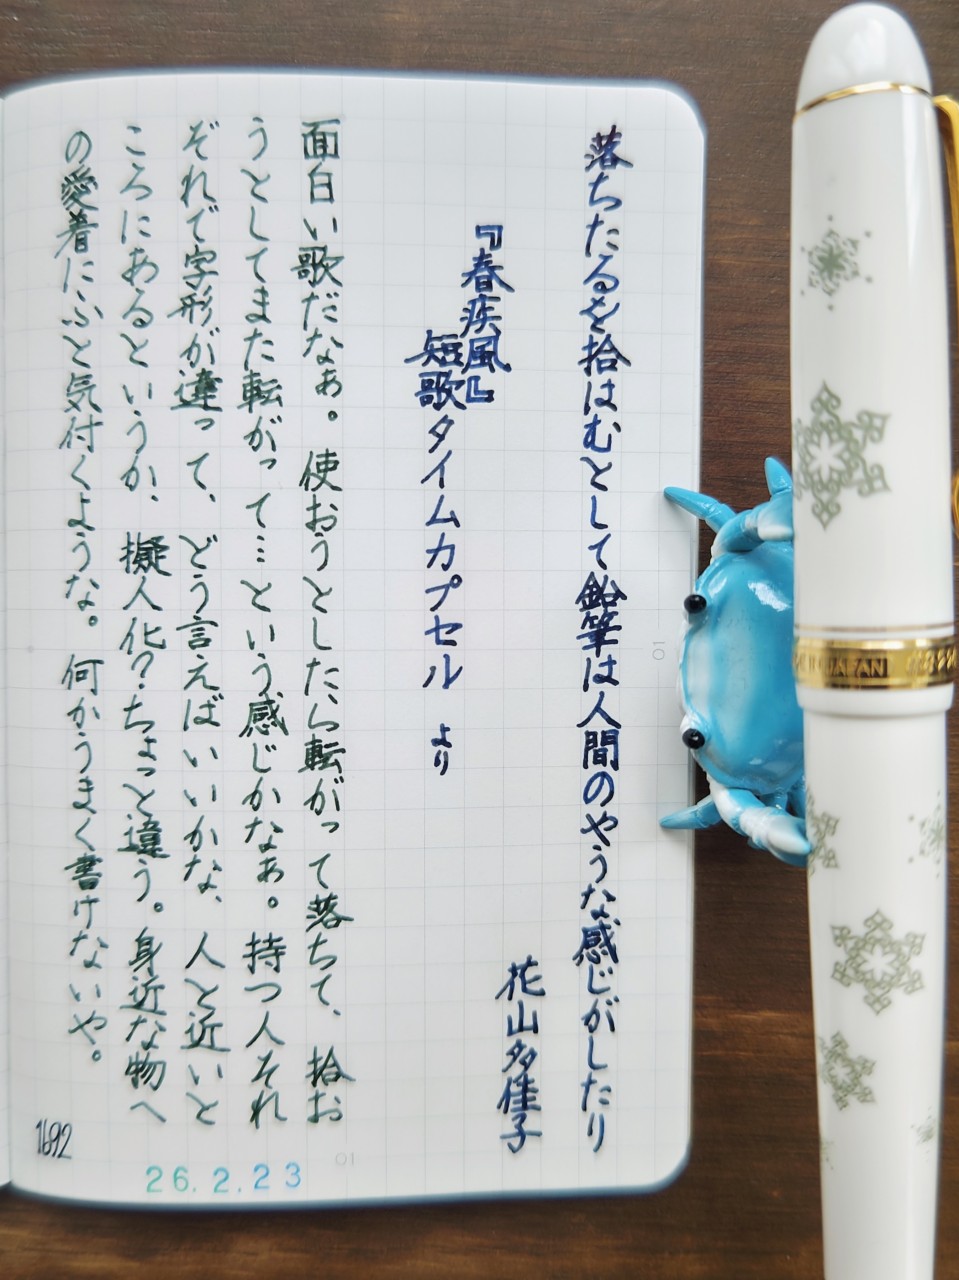 落ちたるを拾はむとして鉛筆は人間のやうな感じがしたり
花山多佳子
『春疾風』
短歌タイムカプセル より
面白い歌だなぁ。使おうとしたら転がって落ちて、拾お
うとしてまた転がって…という感じかなぁ。持つ人それ
ぞれで字形が違って、どう言えばいいかな、人と近いと
ころにあるというか、擬人化?ちょっと違う。身近な物へ
の愛着にふと気付くような。何かうまく書けないや。
1692
26.2.23
10
10
JAPAN